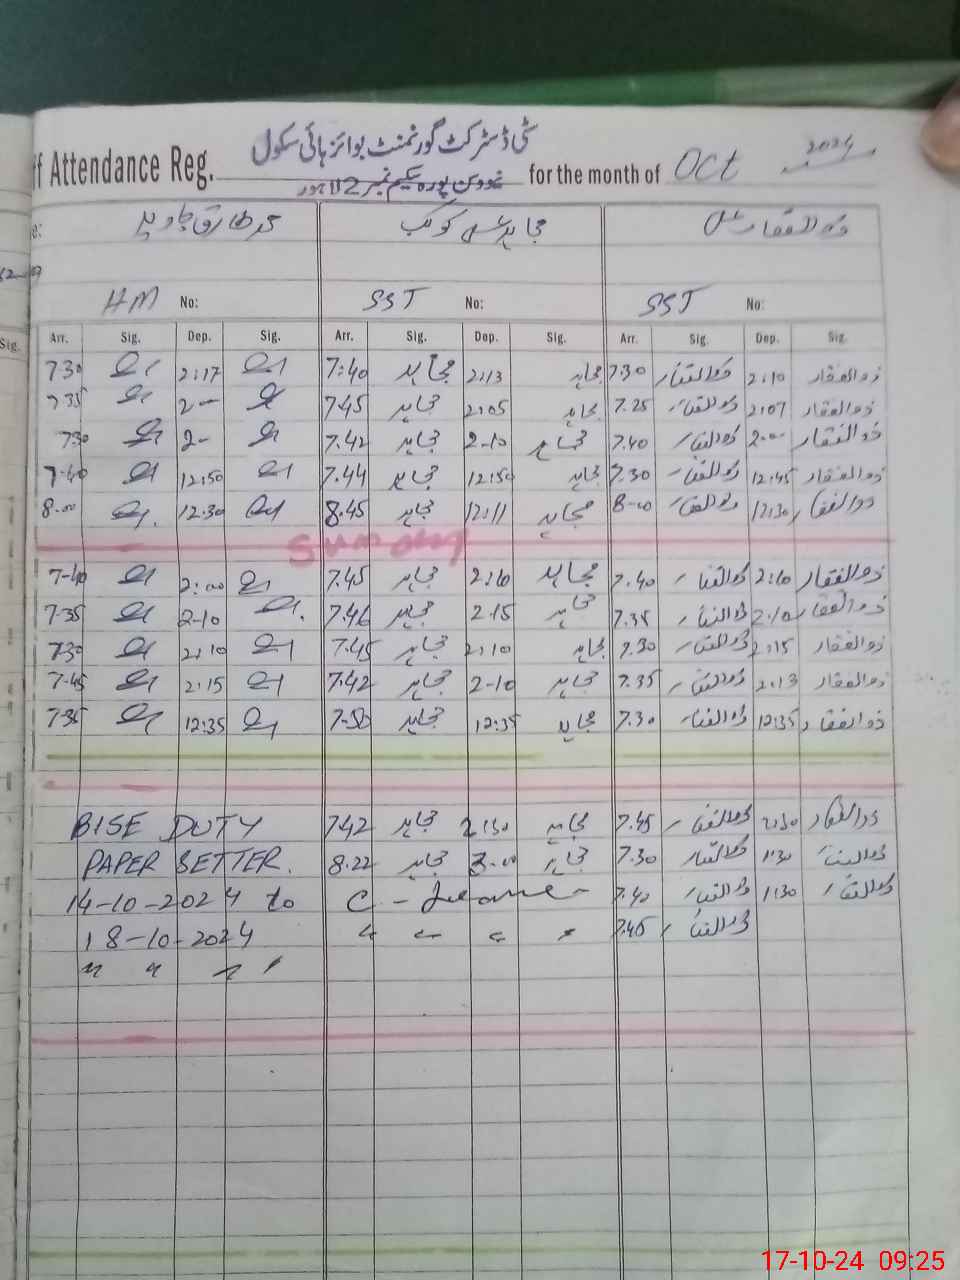 ff Attendance Reg. سٹی ڈسٹرکٹ گورنمنٹ بوائز ہائی سکول for the month of Oct 2024
پورہ سکیم نمبر 2 لاہور
محمد طارق جاوید مجاہد ذوالفقار
HM No: SST No: SST No:
Sig. Arr. Sig. Dep. Sig. Arr. Sig. Dep. Sig. Arr. Sig. Dep. Sig.
7.30 2:17 7:40 مجاہد 2:13 مجاہد 7.30 ذوالفقار 2:10 ذوالفقار
7.35 2- 7.45 مجاہد 2:05 مجاہد 7.25 ذوالفقار 2:07 ذوالفقار
7.30 2- 7.42 مجاہد 2-10 مجاہد 7.40 ذوالفقار 2-00 ذوالفقار
7.40 12:50 7.44 مجاہد 12:50 مجاہد 7.30 ذوالفقار 12:45 ذوالفقار
8.00 12:30 8.45 مجاہد 12:11 مجاہد 8-00 ذوالفقار 12:30 ذوالفقار
Sunday
7-40 2:00 7.45 مجاہد 2:10 مجاہد 7.40 ذوالفقار 2:10 ذوالفقار
7.35 2-10 7.46 مجاہد 2.15 مجاہد 7.35 ذوالفقار 2:10 ذوالفقار
7.30 2:10 7.45 مجاہد 2:10 مجاہد 7.30 ذوالفقار 2:15 ذوالفقار
7-45 2:15 7.42 مجاہد 2-10 مجاہد 7.35 ذوالفقار 2:13 ذوالفقار
7.35 12:35 7-50 مجاہد 12:35 مجاہد 7.30 ذوالفقار 12:35 ذوالفقار
BISE DUTY 7.42 مجاہد 2:30 مجاہد 7.45 ذوالفقار 2:30 ذوالفقار
PAPER SETTER. 8.22 مجاہد مجاہد 7.30 ذوالفقار 1:30 ذوالفقار
14-10-2024 to C- Leave 7.40 ذوالفقار 1:30 ذوالفقار
18-10-2024 " " " " 7.45 ذوالفقار
" " " "
17-10-24 09:25